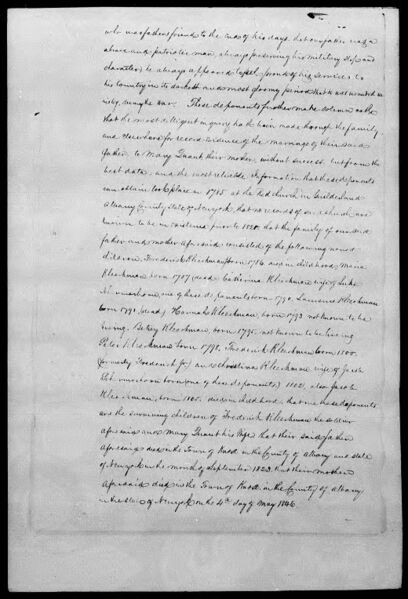 who was a firm friend to the end of his days. that our father was a
above and patriotic man, always preserving his military step and
character, he always appeared to feel proud of his services to
his country in its darkest and most gloomy period that is well to
the war. These deponents further make solemn oath
that the most diligent inquiry hath been made through the family
and elsewhere for record evidence of the marriage of their said
father, to Mary Quant their mother, without success. but from the
best data, and the most reliable information that these deponents
can obtain took place in 1785 at the Red church in Guilderland
Albany County State of New york, that no records of said church are
known to be in existence prior to that the family of our said
father and mother aforesaid consisted of the following named
children, Frederick Kleeckman born 1786 died in childhood, Maria
Kleeckman born 1787 (dead) Catherina Kleeckman wife of
one of these deponents born 1790. Laurence Kleeckman
born 1791 (dead) Hannah Kleeckman, born 1793 not known to be
living. Betsey Kleeckman, born 1795, not known to be living
Peter Kleeckman, born 1798. Frederick Kleeckman born 1800.
(formerly Frederick Jr.) and Christina Kleeckman wife of Jacob
born (one of these deponents) 1802, also Jacob
Kleeckman, born 1805. died in childhood, that we these deponents
are the surviving children of Frederick Kleeckman the soldier
aforesaid and Mary Quant his wife that their said father
aforesaid died in the Town of Knox in the County of Albany and state
of New york in the month of September 1823. that their mother
aforesaid died in the Town of Knox in the County of Albany
in the State of New york on the 4th day of May 1846